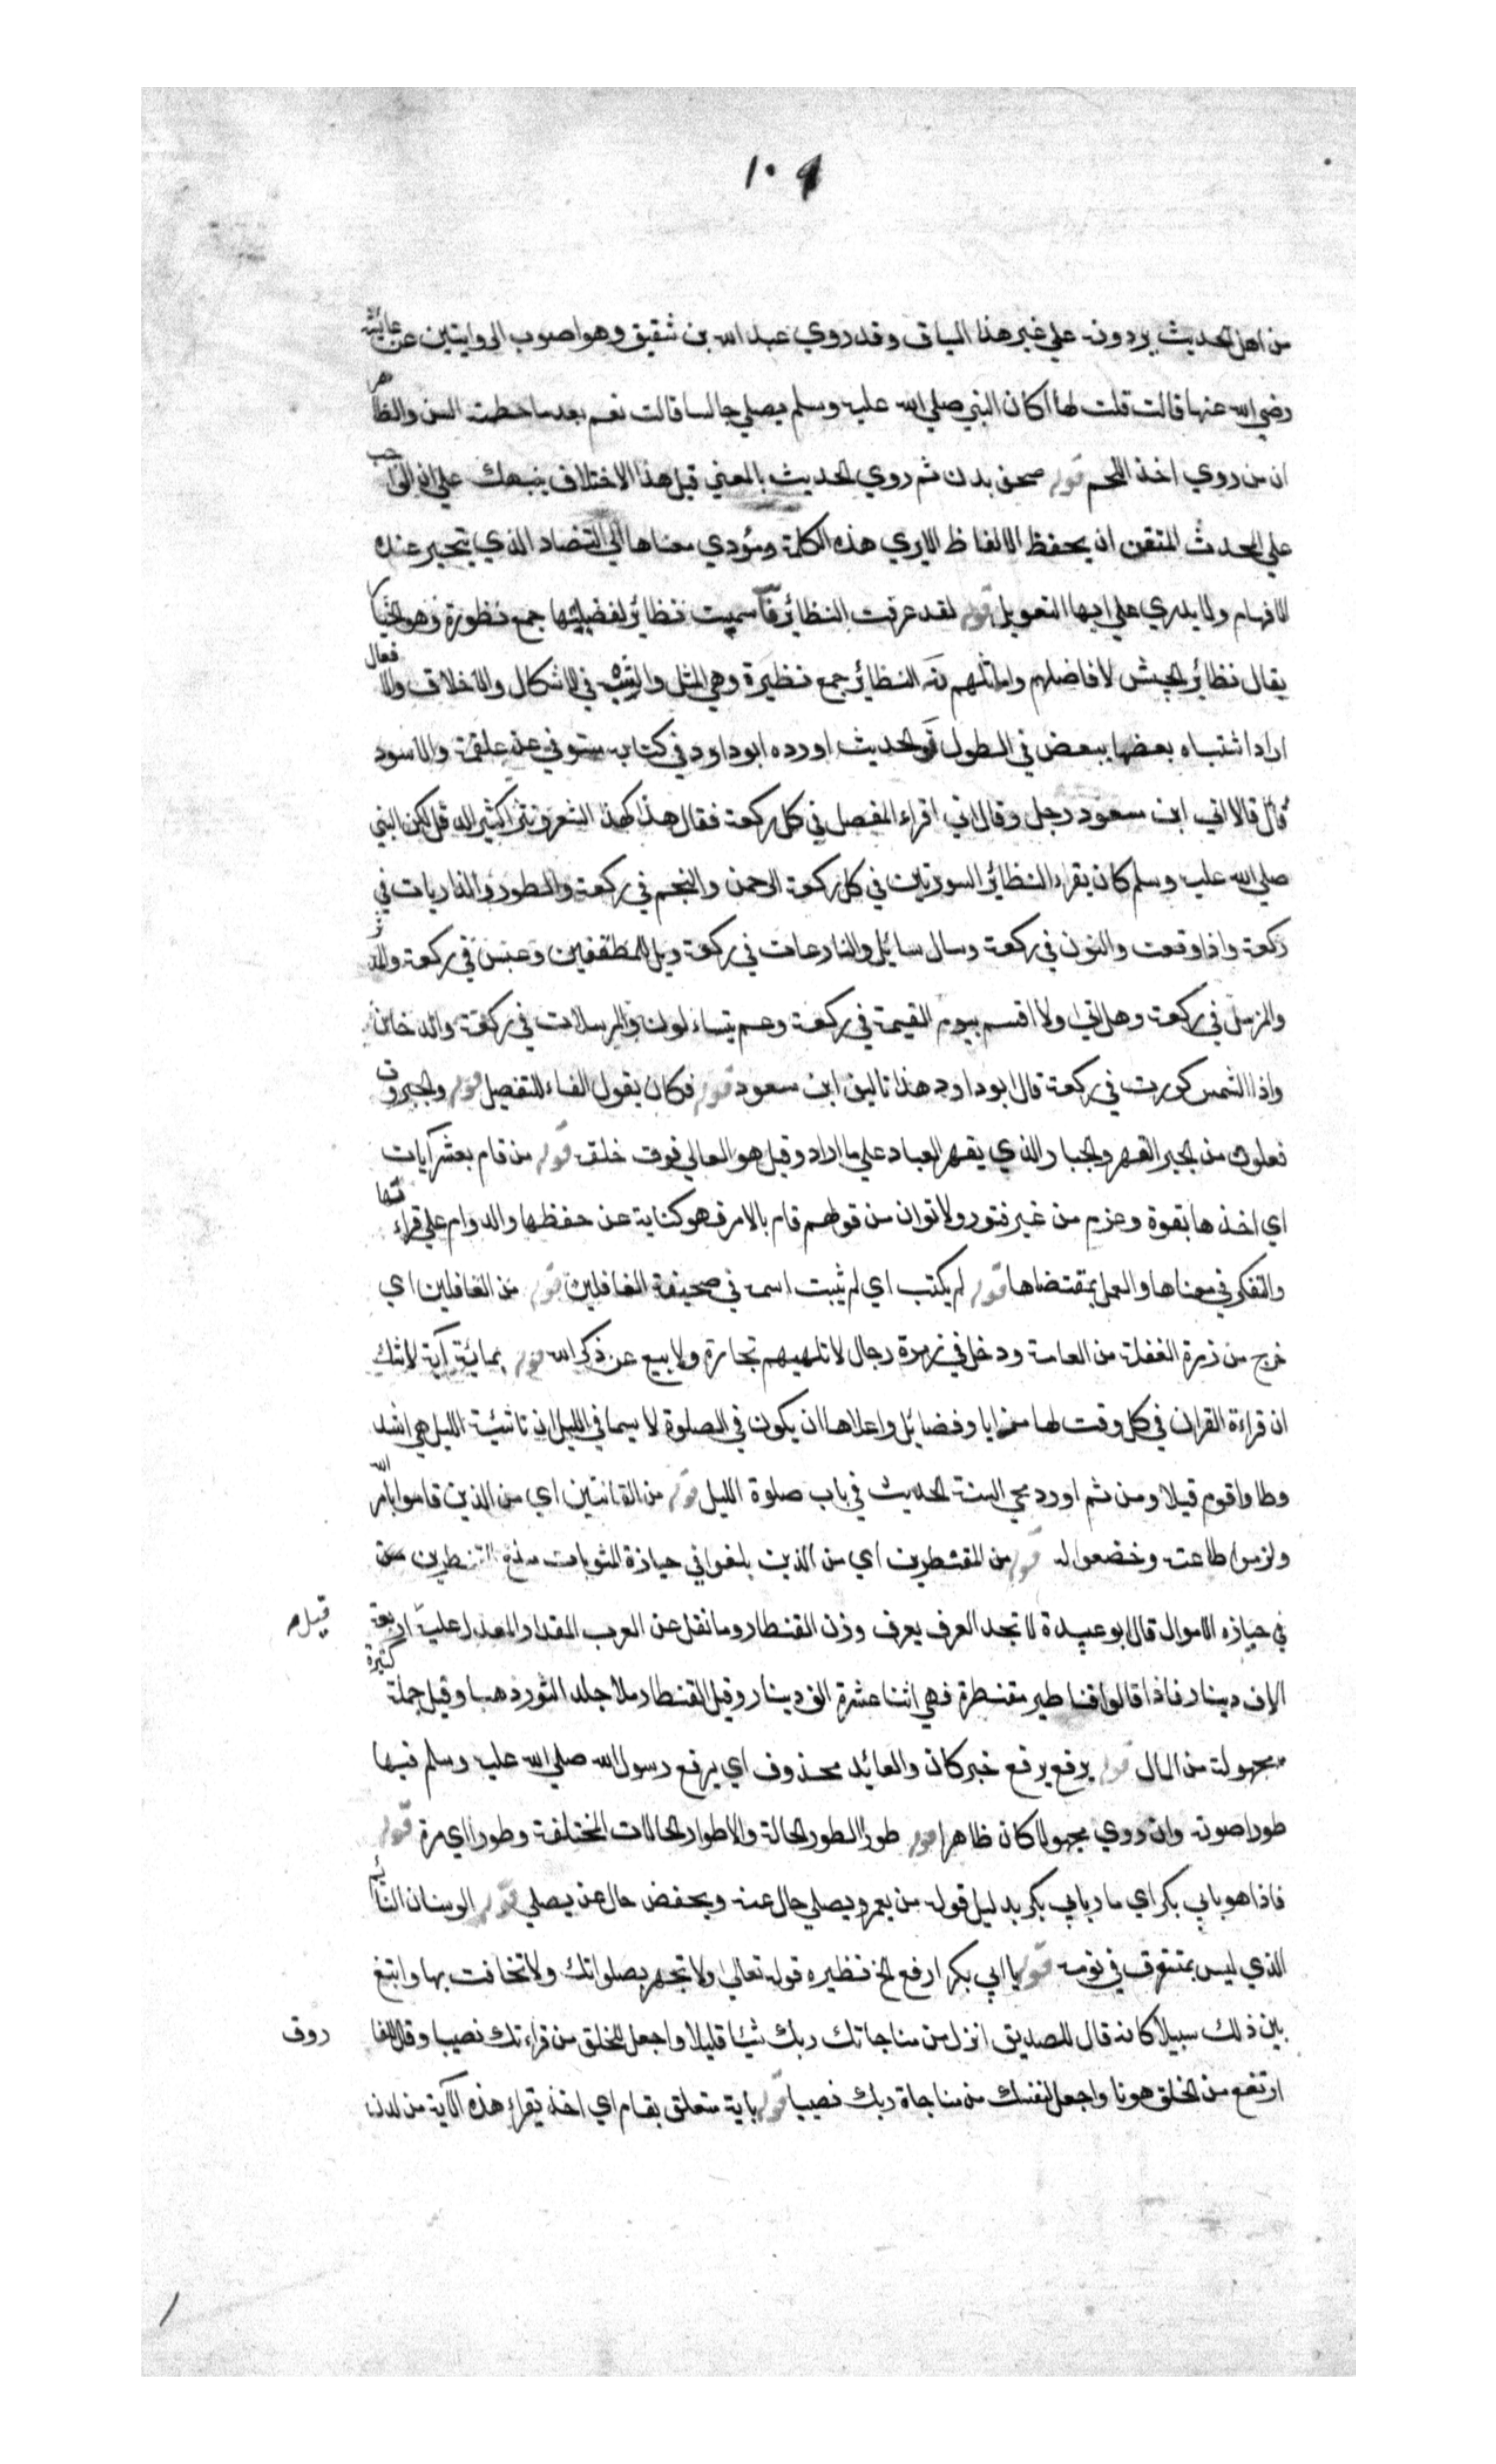 ١٠٩
من اهل الحديث يردونه علي غير هذا السياق وقد روي عبد الله بن شقيق وهو اصوب الروايتين عن عايشة
رضي الله عنها قالت قلت لها اكان النبي صلي الله عليه وسلم يصلي جالسا قالت نعم بعد ما حطمته السن والظاهر
ان من روي اخذ اللحم قوله صحف بدن ثم روي الحديث بالمعني قبل هذا الاختلاف ينبهك علي ان الواجب
علي المحدث المتقن ان يحفظ الالفاظ الايري هذه الكلمة ومؤدي معناها الي التضاد الذي يتحير عنده
الافهام ولا يدري علي ايها التعويل قوله لقد عرفت النظائر فا سميت نظائر لفضيلتها جمع نظورة وهو الخيار
يقال نظائر الجيش لافاضلهم واماثلهم نه النظائر جمع نظيرة وهي المثل والشبه في الاشكال والاخلاق والافعال
اراد اشتباه بعضها ببعض في الطول تو الحديث اورده ابو داود في كتابه مستوفي عن علقمة والاسود
قال قالا اتي ابن مسعود رجل وقال اني اقراء المفصل في كل ركعة فقال هذا كهذ الشعر ونثرا كنثر الدقل لكن النبي
صلي الله عليه وسلم كان يقراء النظائر السورتين في كل ركعة الرحمن والنجم في ركعة والطور والذاريات في
ركعة واذا وقعت والنون في ركعة وسال سائل والنازعات في ركعة ويل للمطففين وعبس في ركعة والمدثر
والمزمل في ركعة وهل اتي ولا اقسم بيوم القيمة في ركعة وعم يتساءلون والمرسلات في ركعة والدخان
واذا الشمس كورت في ركعة قال ابو داود هذا تاليف ابن مسعود قوله فكان يقول الفاء للتفصيل قوله والجبروت
فعلوت من الجبر القهر والجبار الذي يقهر العباد علي ما اراد وقيل هو العالي فوق خلقه قوله من قام بعشر آيات
اي اخذها بقوة وعزم من غير فتور ولا توان من قولهم قام بالامر فهو كناية عن حفظها والدوام علي قراءتها
والتفكر في معناها والعمل بمقتضاها قوله لم يكتب اي لم يثبت اسمه في صحيفة الغافلين قوله من الغافلين اي
خرج من زمرة الغفلة من العامة ودخل في زمرة رجال لا تلهيهم تجارة ولا بيع عن ذكر الله قوله بمائة آية لا شك
ان قراءة القران في كل وقت لها مزايا وفضائل واعلاها ان يكون في الصلوة لا سيما في الليل ان ناشئة الليل هي اشد
وطا واقوم قيلا ومن ثم اورد محي السنة الحديث في باب صلوة الليل قوله من القانتين اي من الذين قاموا بامر الله
ولزموا طاعته وخضعوا له قوله من المقنطرين اي من الذين بلغوا في حيازة المثوبات مبلغ المقنطرين
في حيازه الاموال قال ابو عبيدة لا تجد العرف يعرف وزن القنطار وما نقل عن العرب المقدار المعدل عليه اربعة
قيل
الاف دينار فاذا قالوا قناطير مقنطرة فهي اثنا عشرة الف دينار وقيل القنطار ملا جلد الثور ذهبا وقيل جملة كثيرة
مجهولة من المال قوله يرفع يرفع خبر كان والعائد محذوف اي يرفع رسول الله صلي الله عليه وسلم فيها
طورا صوته وان روي مجهولا كان ظاهرا قوله طورا الطور الحالة والاطوار الحالات المختلفة وطورا اي مرة قوله
فاذا هو بابي بكر اي مار بابي بكر بدليل قوله من بعمر ويصلي حال عنه ويخفض حال عن يصلي قوله الوسنان النائم
الذي ليس بمستغرق في نومه قوله يا ابي بكر ارفع الخ نظيره قوله تعالي ولا تجهر بصلواتك ولا تخافت بها وابتغ
بين ذلك سبيلا كانه قال للصديق انزل من مناجاتك ربك شيئا قليلا واجعل للخلق من قراءتك نصيبا وقال للفا
روق
ارتفع من الخلق هونا واجعل لنفسك من مناجاة ربك نصيبا قوله باية متعلق بقام اي اخذ يقراء هذه الآية من لدن